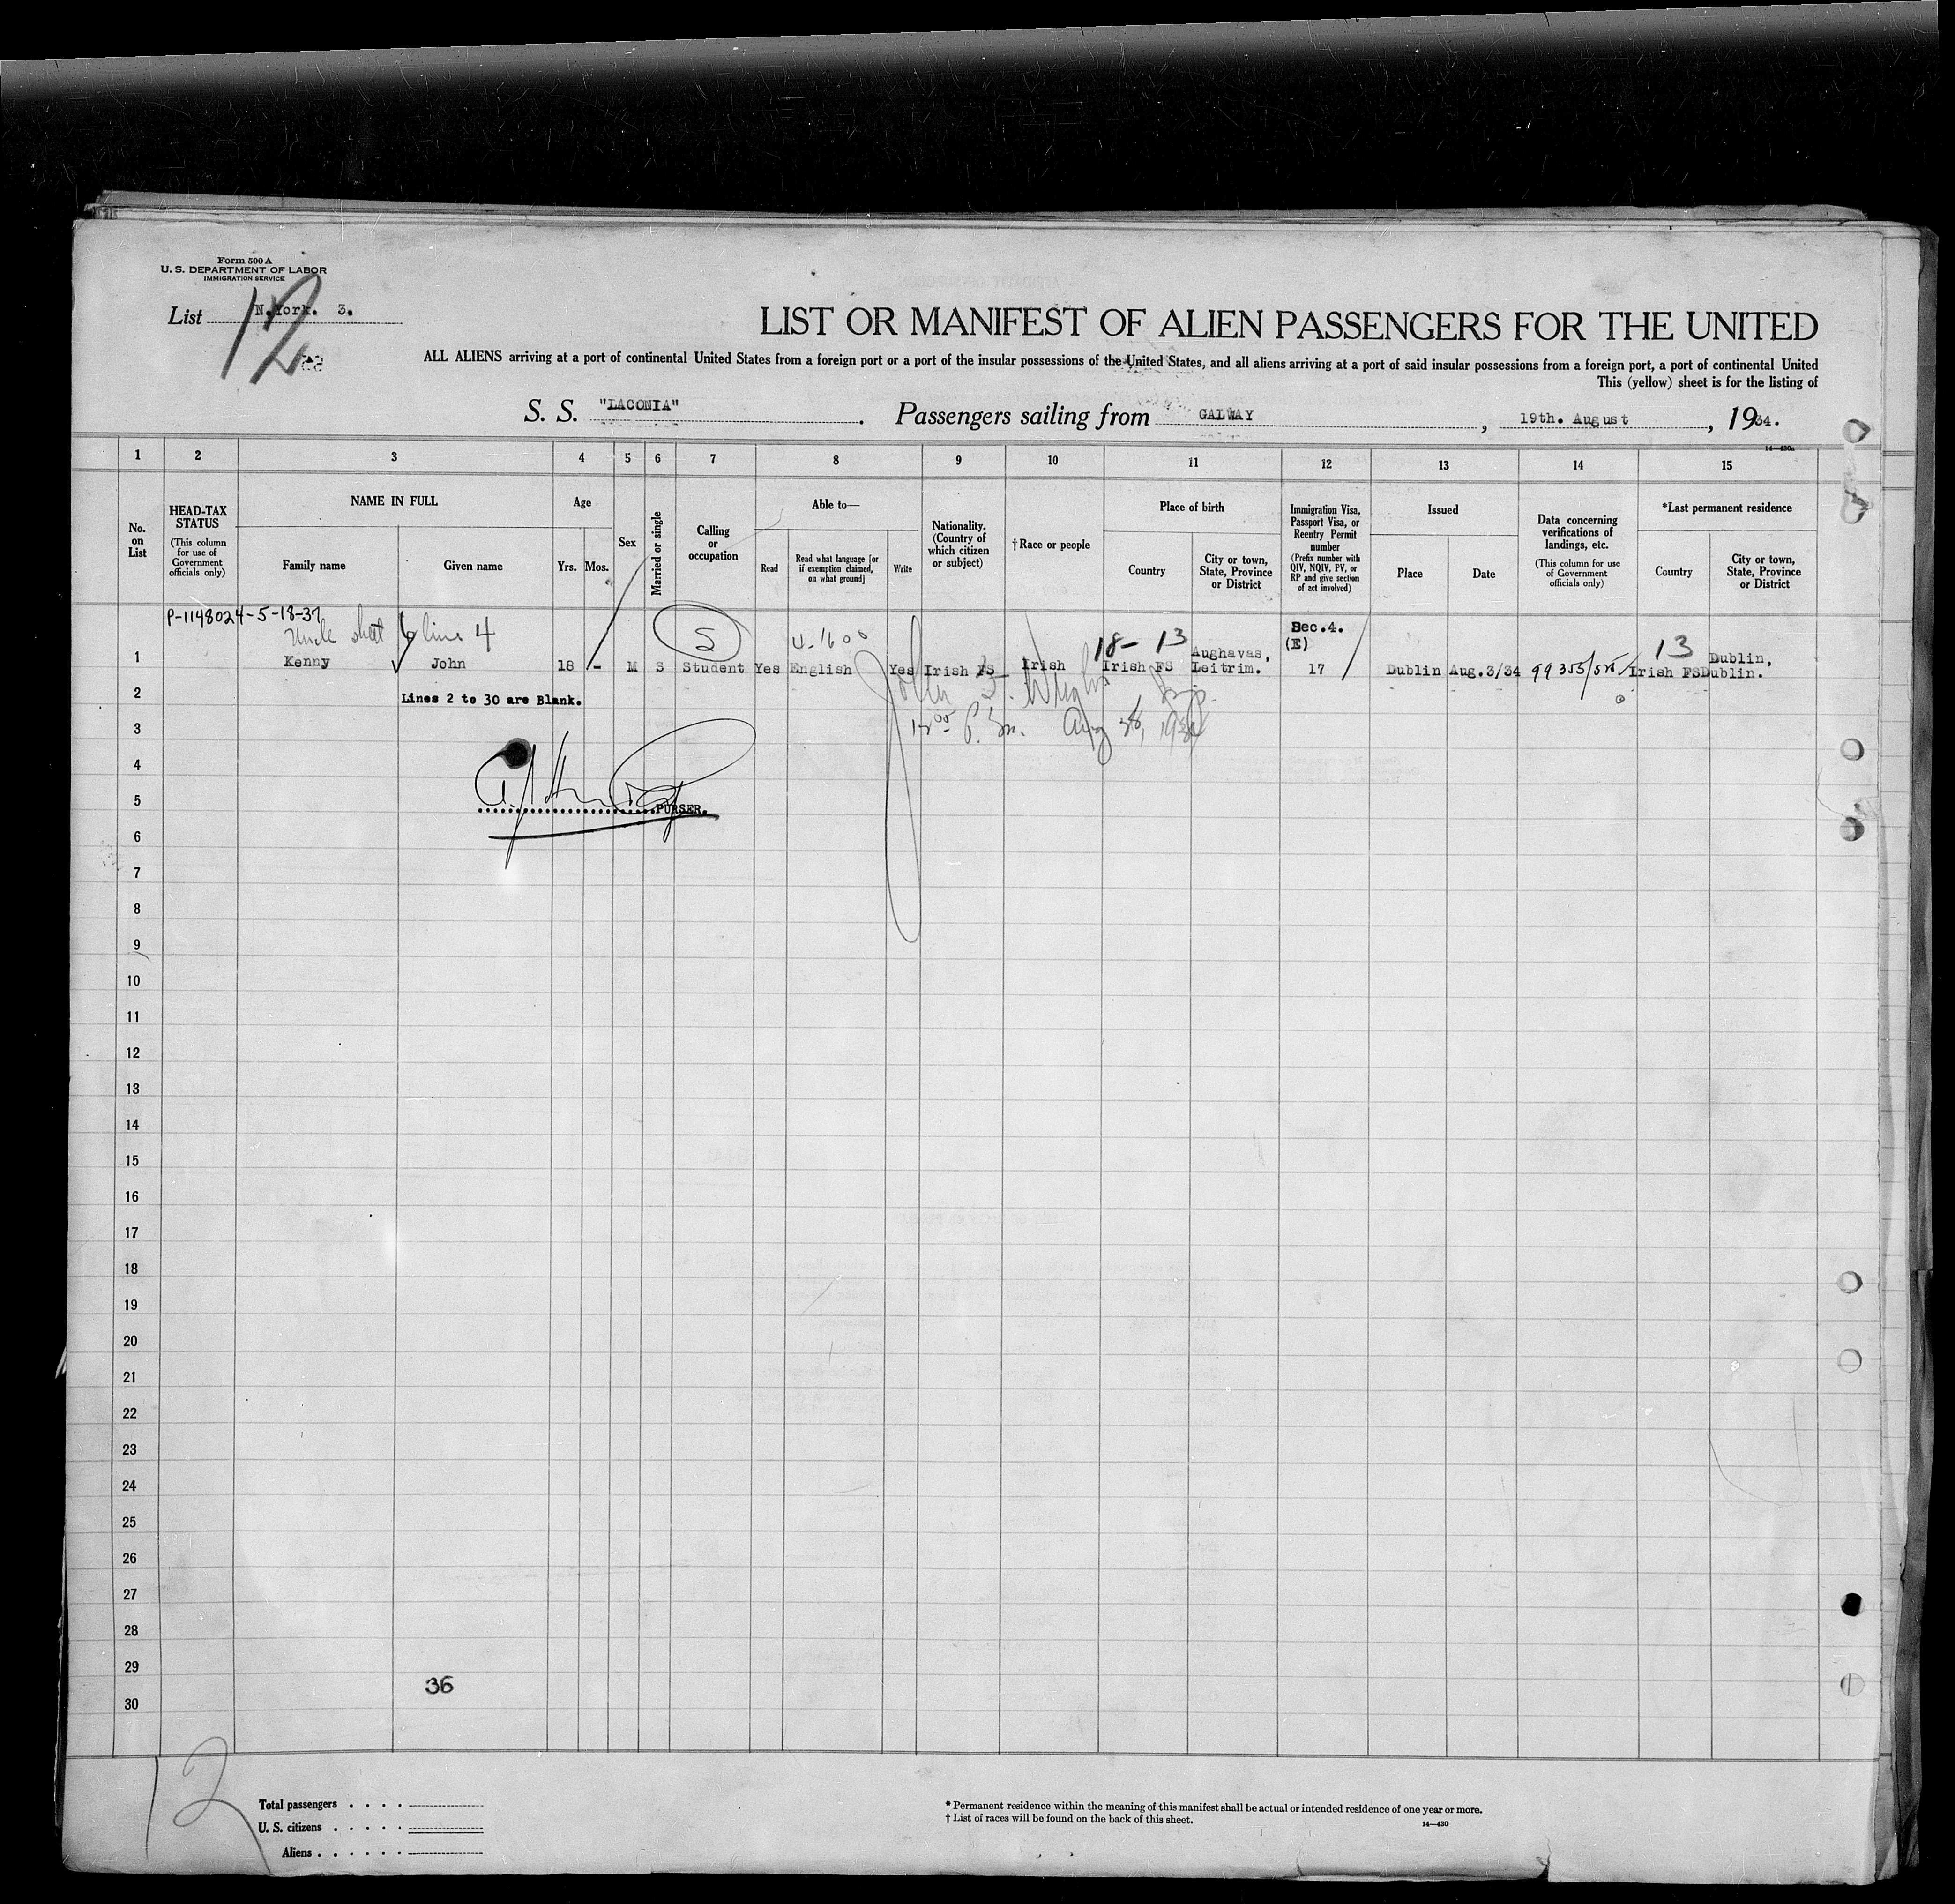 Form 500 A
U. S. DEPARTMENT OF LABOR
IMMIGRATION SERVICE
List N.York. 3.
12
LIST OR MANIFEST OF ALIEN PASSENGERS FOR THE UNITED
ALL ALIENS arriving at a port of continental United States from a foreign port or a port of the insular possessions of the United States, and all aliens arriving at a port of said insular possessions from a foreign port, a port of continental United
This (yellow) sheet is for the listing of
S. S. "LACONIA" . Passengers sailing from GALWAY , 19th. August , 1934.
14—430a
1 2 3 4 5 6 7 8 9 10 11 12 13 14 15
No. on List
HEAD-TAX STATUS
(This column for use of Government officials only)
NAME IN FULL
Family name
Given name
Age
Yrs.
Mos.
Sex
Married or single
Calling or occupation
Able to—
Read
Read what language [or if exemption claimed, on what ground]
Write
Nationality. (Country of which citizen or subject)
†Race or people
Place of birth
Country
City or town, State, Province or District
Immigration Visa, Passport Visa, or Reentry Permit number
(Prefix number with QIV, NQIV, PV, or RP and give section of act involved)
Issued
Place
Date
Data concerning verifications of landings, etc.
(This column for use of Government officials only)
*Last permanent residence
Country
City or town, State, Province or District
P-1148024-5-18-37
Uncle sheet 6 line 4
S
18- 13
Sec.4.
(E)
13
1 Kenny John 18 - M S Student Yes English Yes Irish FS Irish Irish FS Aughavas, Leitrim. 17 Dublin Aug.3/34 99355/525 Irish FS Dublin, Dublin.
2 Lines 2 to 30 are Blank.
John J. Insp.
P.M. Aug 28, 1934
3
4
5
PURSER.
6
7
8
9
10
11
12
13
14
15
16
17
18
19
20
21
22
23
24
25
26
27
28
29
36
30
12
Total passengers . . . .
U. S. citizens . . . . .
Aliens . . . . . .
* Permanent residence within the meaning of this manifest shall be actual or intended residence of one year or more.
† List of races will be found on the back of this sheet.
14—430